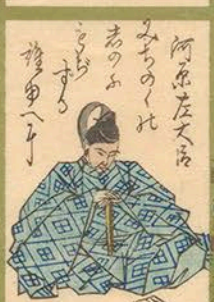 河原左大臣
みちのくの
志のふ
もぢずり
誰由へに